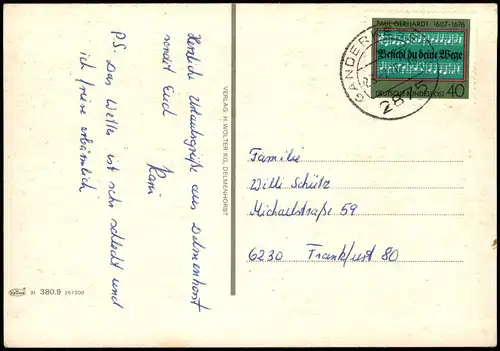 PAUL GERHARDT 1607-1676
Befiehl du deine Wege
DEUTSCHE BUNDESPOST 40
GANDERKESEE
2875
Herzliche Urlaubsgrüße aus Delmenhorst
sendet Euch
PS Das Wetter ist sehr schlecht und
ich friere erbärmlich
VERLAG: H. WOLTER KG, DELMENHORST
Familie
Willi Schütz
Michaelstraße 59
6230 Frankfurt 80
31 380.9 267200